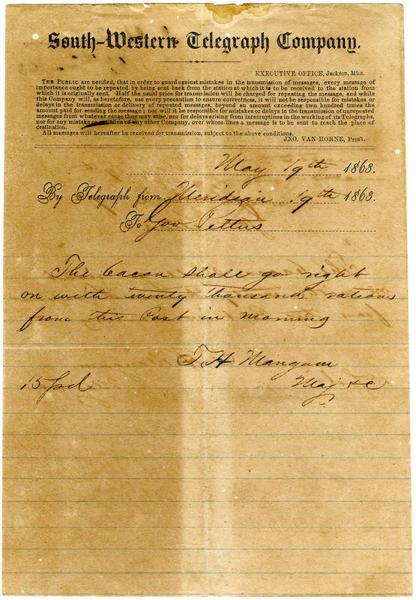 South-Western Telegraph Company.
EXECUTIVE OFFICE, Jackson, Miss.
THE PUBLIC are notified, that in order to guard against mistakes in the transmission of messages, every message of
importance ought to be repeated by being sent back from the station at which it is to be received to the station from
which it is originally sent. Half the usual price for transmission will be charged for repeating the message, and while
this Company will, as heretofore, use every precaution to ensure correctness, it will not be responsible for mistakes or
delays in the transmission or delivery of repeated messages, beyond an amount exceeding two hundred times the
amount paid for sending the message; nor will it be responsible for mistakes or delays in the transmission of unrepeated
messages from whatever cause they may arise, nor for delays arising from interruptions in the working of its Telegraphs,
nor for any mistake or omission of any other Company, over whose lines a message is to be sent to reach the place of
destination.
All messages will hereafter be received for transmission, subject to the above conditions.
JNO. VAN HORNE, Pres't.
May 19th 1863.
By Telegraph from Meridian 19th 1863.
To Gov Pettus
The bacon shall go right
on with twenty thousand rations
from this Post in morning
T H Mangum
15 pd Maj &c